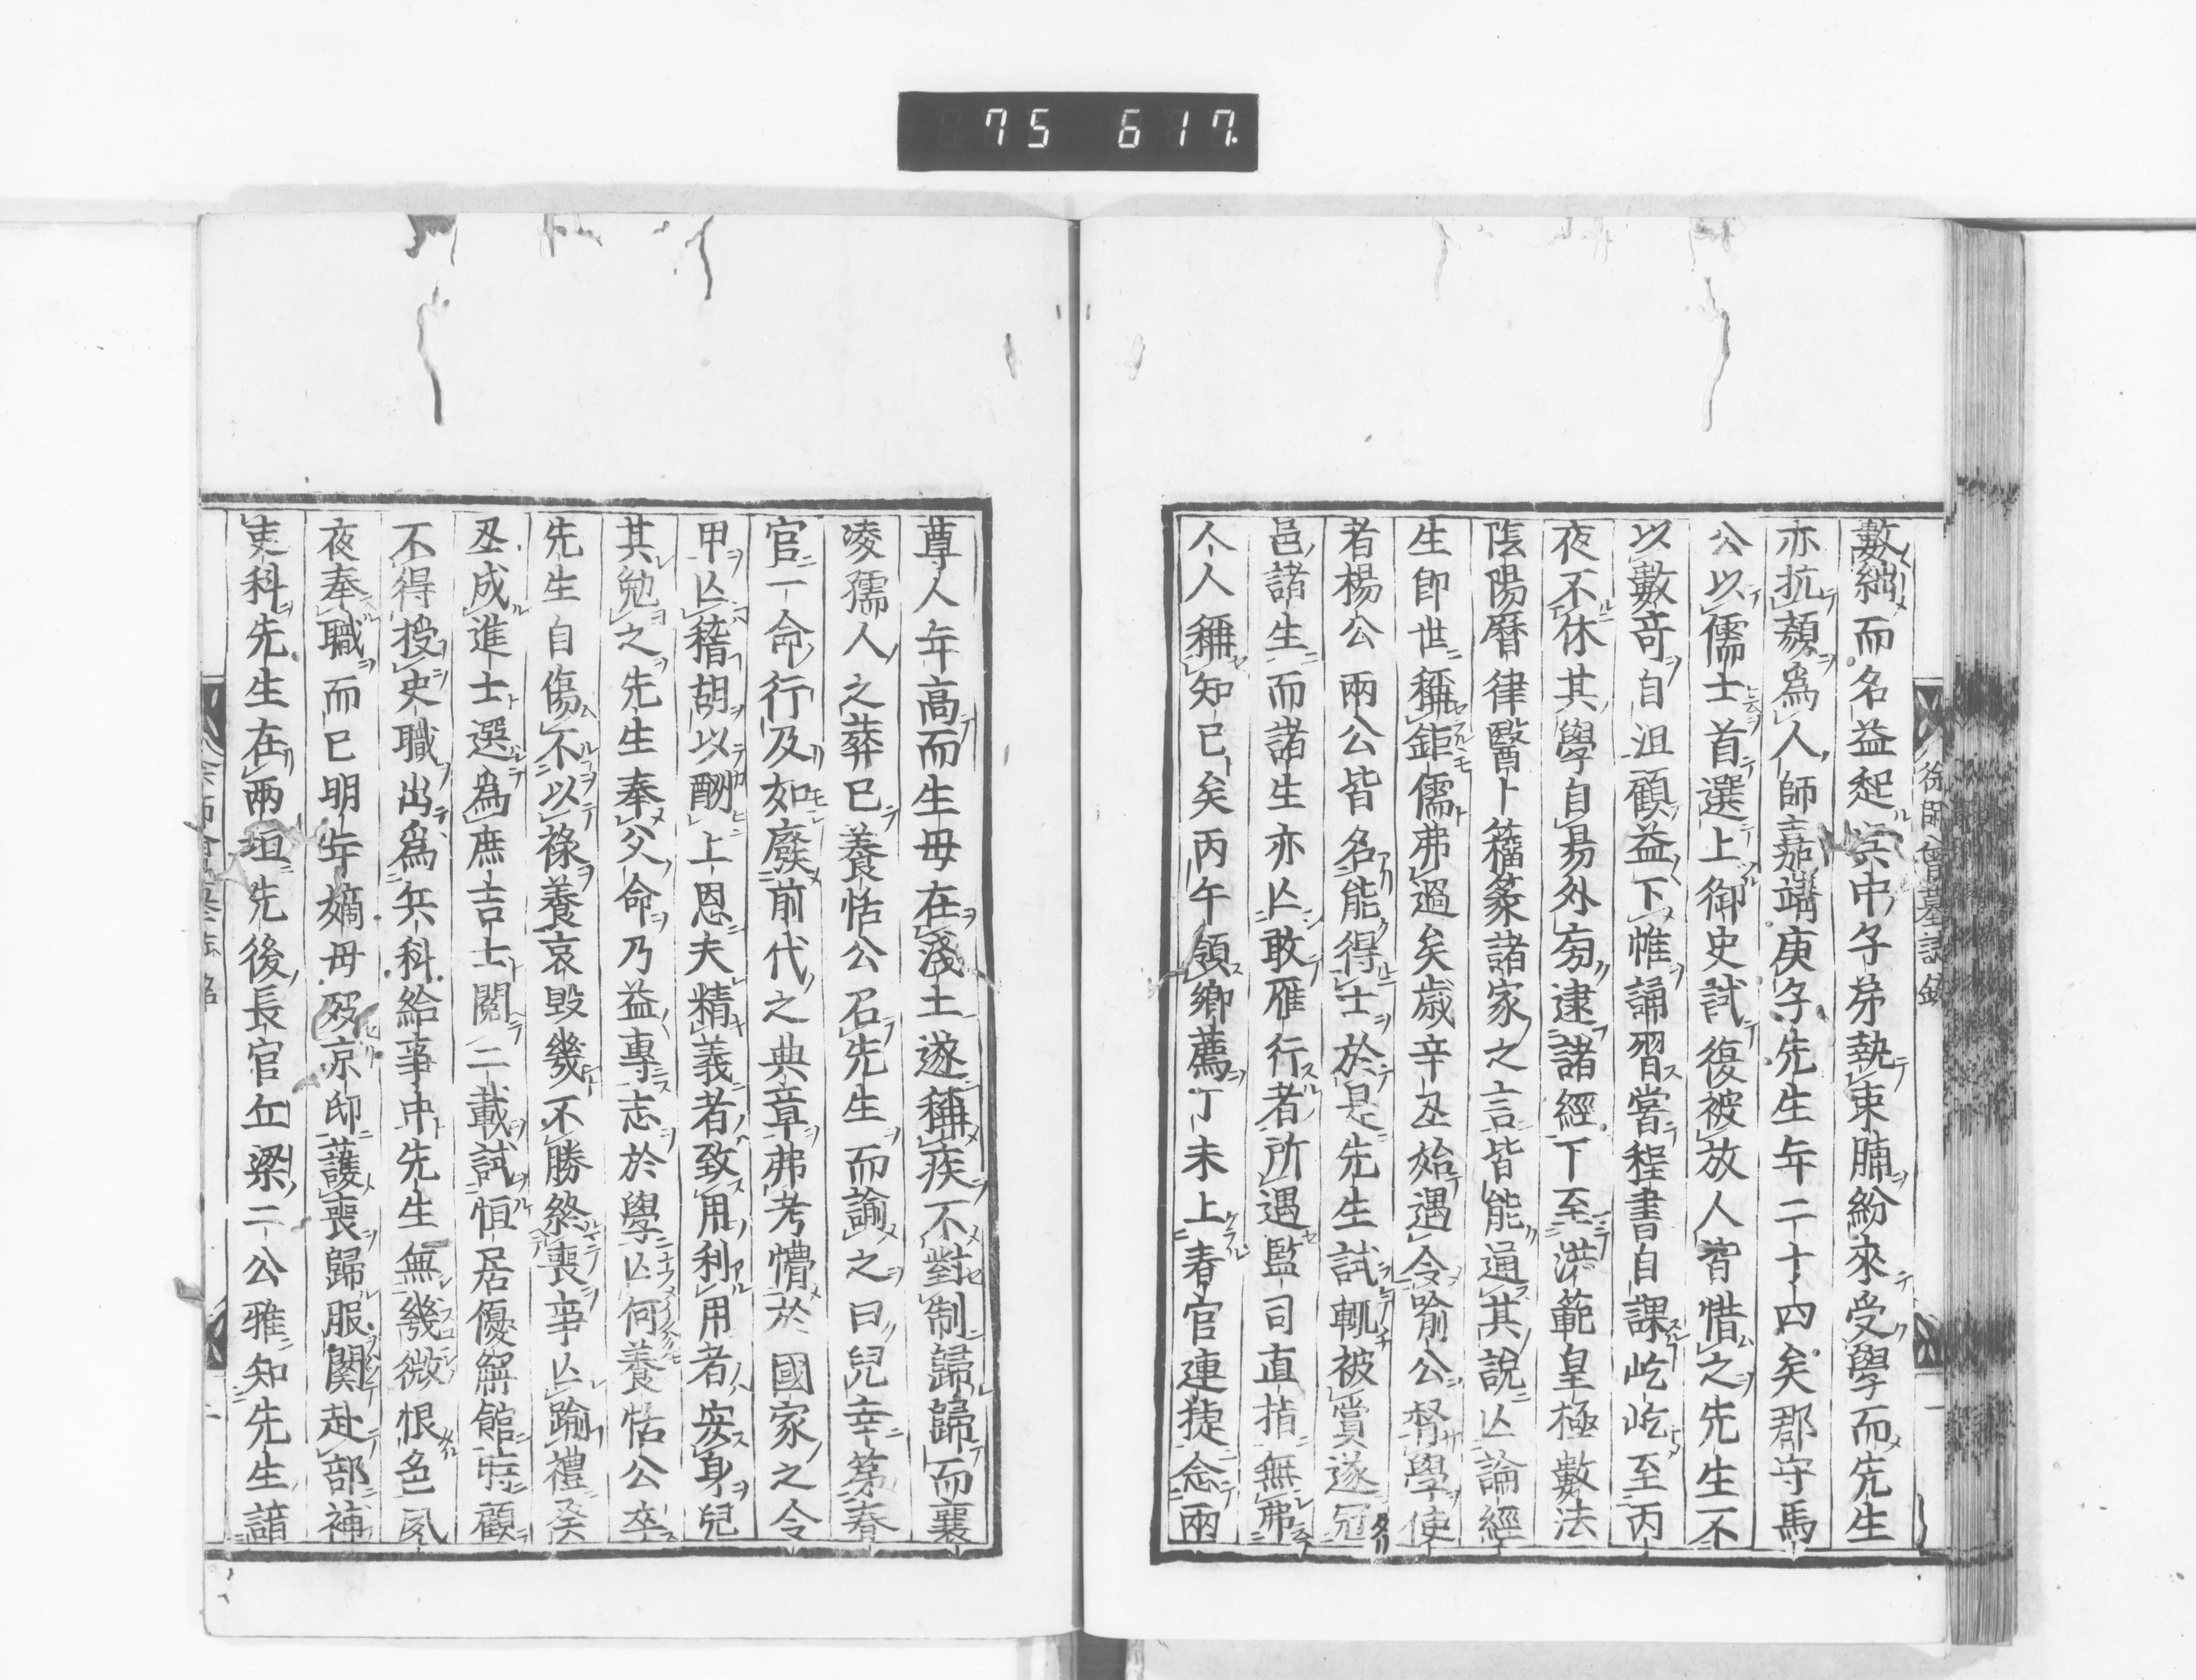 75 617.
徐師曾墓誌銘
數絀而名益起吳中子弟執束脯紛來受學而先生
亦抗顏爲人師嘉靖庚子先生年二十四矣郡守馬
公以儒士首選上御史試復被放人皆惜之先生不
以數奇自沮顧益下帷誦習嘗程書自課屹屹至丙
夜不休其學自易外旁逮諸經下至洪範皇極數法
陰陽曆律醫卜籒篆諸家之言皆能通其說亾論經
生即世稱鉅儒弗過矣歲辛丑始遇令喻公督學使
者楊公兩公皆名能得士於是先生試輒被賞遂冠
邑諸生而諸生亦亾敢雁行者所遇監司直指無弗
人人稱知已矣丙午領鄉薦丁未上春官連捷念兩
尊人年高而生母在淺土遂稱疾不對制歸歸而襄
凌孺人之葬已養恬公召先生而諭之曰兒幸第春
官一命行及如廢前代之典章弗考懵於國家之令
甲亾稽胡以酬上恩夫精義者致用利用者安身兒
其勉之先生奉父命乃益專志於學亾何養恬公卒
先生自傷不以祿養哀毀幾不勝終喪事亾踰禮癸
丑成進士選爲庶吉士閱二載試恒居優解館時顧
不得授史職出爲兵科給事中先生無幾微恨色夙
夜奉職而已明年嫡母歿京邸護喪歸服闋赴部補
吏科先生在兩垣先後長官丘梁二公雅知先生諳